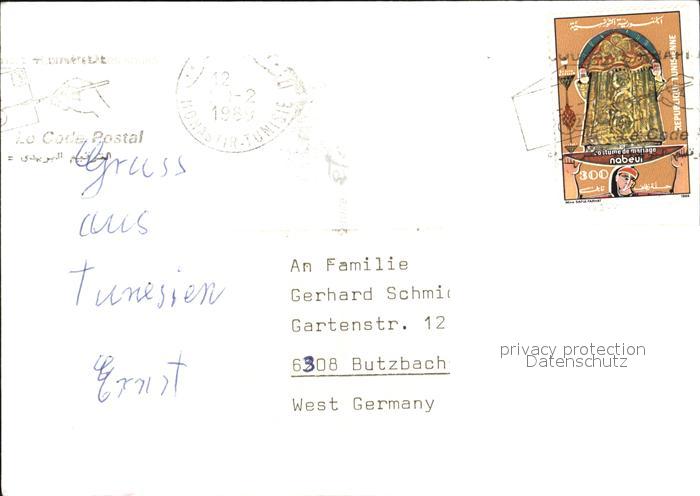 Le Code Postal
الترقيم البريدي =
12
1-2
MONASTIR-TUNISIE
Gruss
aus
Tunesien
Ernst
الجمهورية التونسية
REPUBLIQUE TUNISIENNE
Le Code
Costume de mariage
nabeul
300
An Familie
Gerhard Schmi
Gartenstr. 12
6308 Butzbach
West Germany
privacy protection
Datenschutz